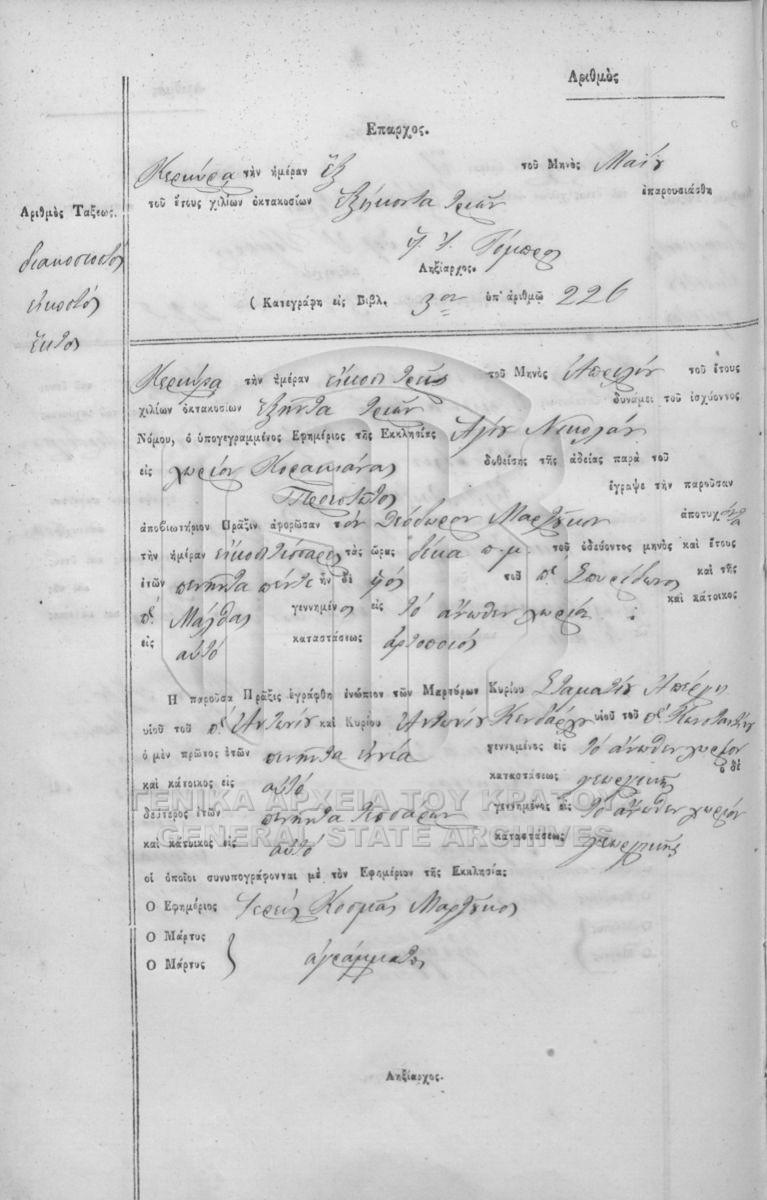 Αριθμὸς
Επαρχος.
Κερκύρα τὴν ἡμέραν ἕξ τοῦ Μηνὸς Μαΐου
τοῦ ἔτους χιλίων ὀκτακοσίων ἑξήκοντα τριῶν ἐπαρουσιάσθη
Ληξίαρχος.
( Κατεγράφη εἰς Βιβλ. 3ον ὑπ' ἀριθμῷ 226
Αριθμὸς Ταξεως.
διακοσιοστός
εἰκοστός
ἕκτος
Κερκύρα τὴν ἡμέραν εἴκοσι τρεῖς τοῦ Μηνὸς Ἀπριλίου τοῦ ἔτους
χιλίων ὀκτακοσίων ἑξῆντα τριῶν δυνάμει τοῦ ἰσχύοντος
Νόμου, ὁ ὑπογεγραμμένος Εφημέριος τῆς Εκκλησίας Ἁγίου Νικολάου
εἰς χωρίον Κορακιάνας δοθείσης τῆς ἀδείας παρὰ τοῦ
ἔγραψε τὴν παροῦσαν
ἀποβιωτήριον Πρᾶξιν ἀφορῶσαν τόν Θεόδωρον Μαρτζοῦκον ἀποτυχόντα
τὴν ἡμέραν εἴκοσι τέσσαρες τὰς ὥρας δέκα π.μ. τοῦ ὁδεύοντος μηνὸς καὶ ἔτους
ἐτῶν πενῆντα πέντε ἦν δὲ υἱός τοῦ πτ Σπυρίδωνος καὶ τῆς
πτ Μάλθας γεννημένος εἰς τό ἄνωθεν χωρίον καὶ κάτοικος
εἰς αὐτό καταστάσεως ἀρτοποιός
Η παροῦσα Πρᾶξις ἐγράφθη ἐνώπιον τῶν Μαρτύρων Κυρίου Σταματίου
υἱοῦ τοῦ πτ Ἀντωνίου καὶ Κυρίου Ἀντωνίου υἱοῦ τοῦ πτ Κωνσταντίνου
ὁ μὲν πρῶτος ἐτῶν πενῆντα ἐννέα γεννημένος εἰς τό ἄνωθεν χωρίον
καὶ κάτοικος εἰς αὐτό καταστάσεως γεωργικῆς ὁ δὲ
δεύτερος ἐτῶν πενῆντα τεσσάρων γεννημένος εἰς τό ἄνωθεν χωρίον
καὶ κάτοικος εἰς αὐτό καταστάσεως γεωργικῆς
οἱ ὁποῖοι συνυπογράφονται μὲ τὸν Εφημέριον τῆς Εκκλησίας
Ο Εφημέριος Ἱερεύς Κοσμᾶς Μαρτζοῦκος
Ο Μάρτυς
Ο Μάρτυς } ἀγράμματοι
Ληξίαρχος.
ΓΕΝΙΚΑ ΑΡΧΕΙΑ ΤΟΥ ΚΡΑΤΟΥΣ
GENERAL STATE ARCHIVES